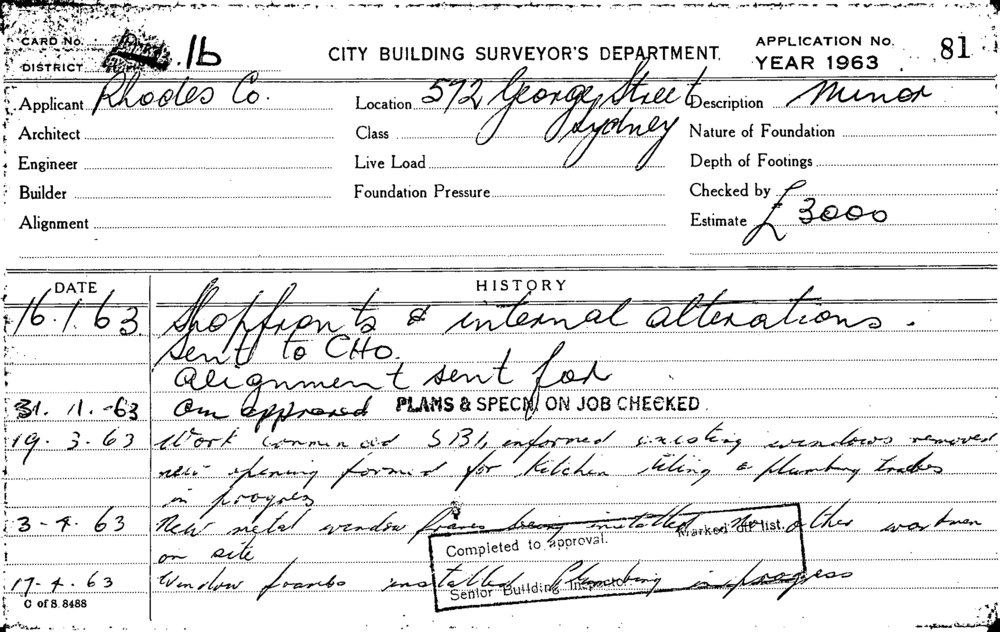 CARD No. 16
CITY BUILDING SURVEYOR'S DEPARTMENT.
APPLICATION No. 81
DISTRICT
YEAR 1963
Applicant Rhodes Co.
Location 592 George Street
Sydney
Description Minor
Architect
Class
Nature of Foundation
Engineer
Live Load
Depth of Footings
Builder
Foundation Pressure
Checked by
Alignment
Estimate £3000
DATE
HISTORY
16.1.63 Shopfronts & internal alterations.
Sent to CHO.
Alignment sent for
approved PLAMS & SPECN ON JOB CHECKED
19.3.63 Work commenced SBI, informed existing windows removed
new opening formed for kitchen tiling & plumbing trades
in progress
3-4.63 New metal window frames being installed. No other workmen
on site
17-4.63 Window frames installed Plumbing in progress
Completed to approval. Marked off list.
Senior Building Inspector
C of S. 8488